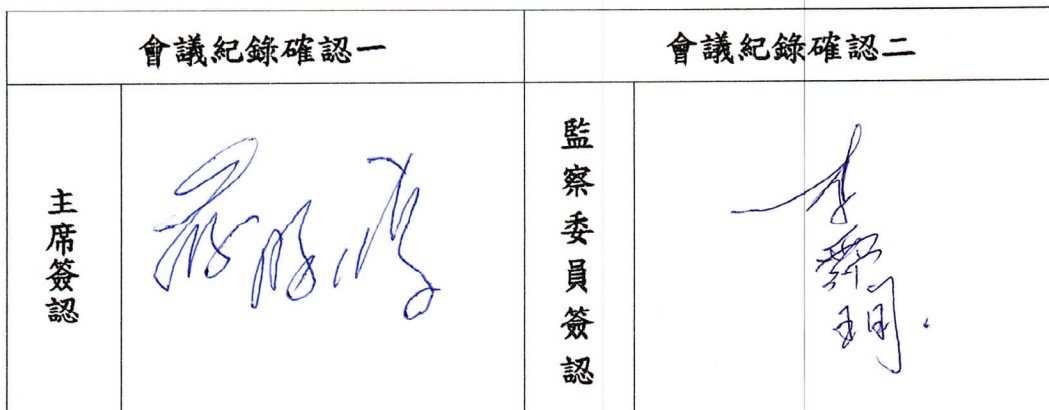 會議紀錄確認一
會議紀錄確認二
主席簽認
監察委員簽認